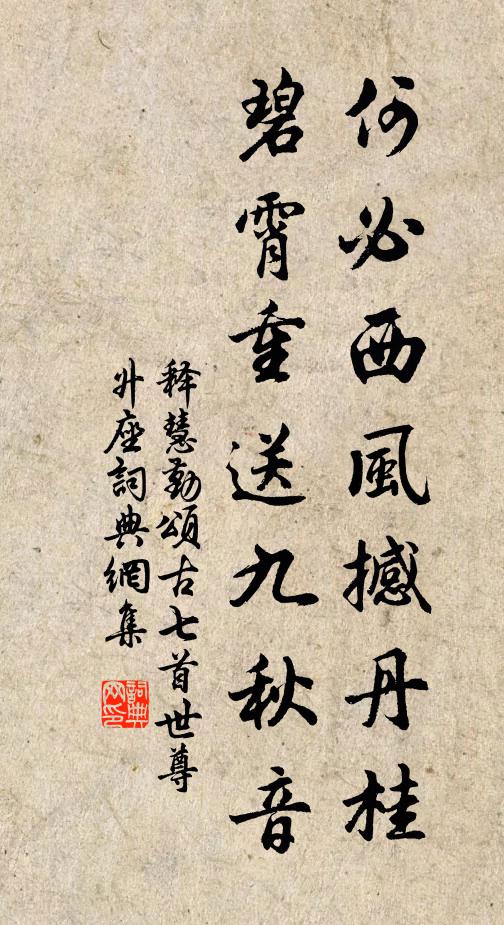 何必西風撼丹桂
碧霄重送九秋音
釋慧勤頌古七首世尊
升座詞典網集
詞典網印